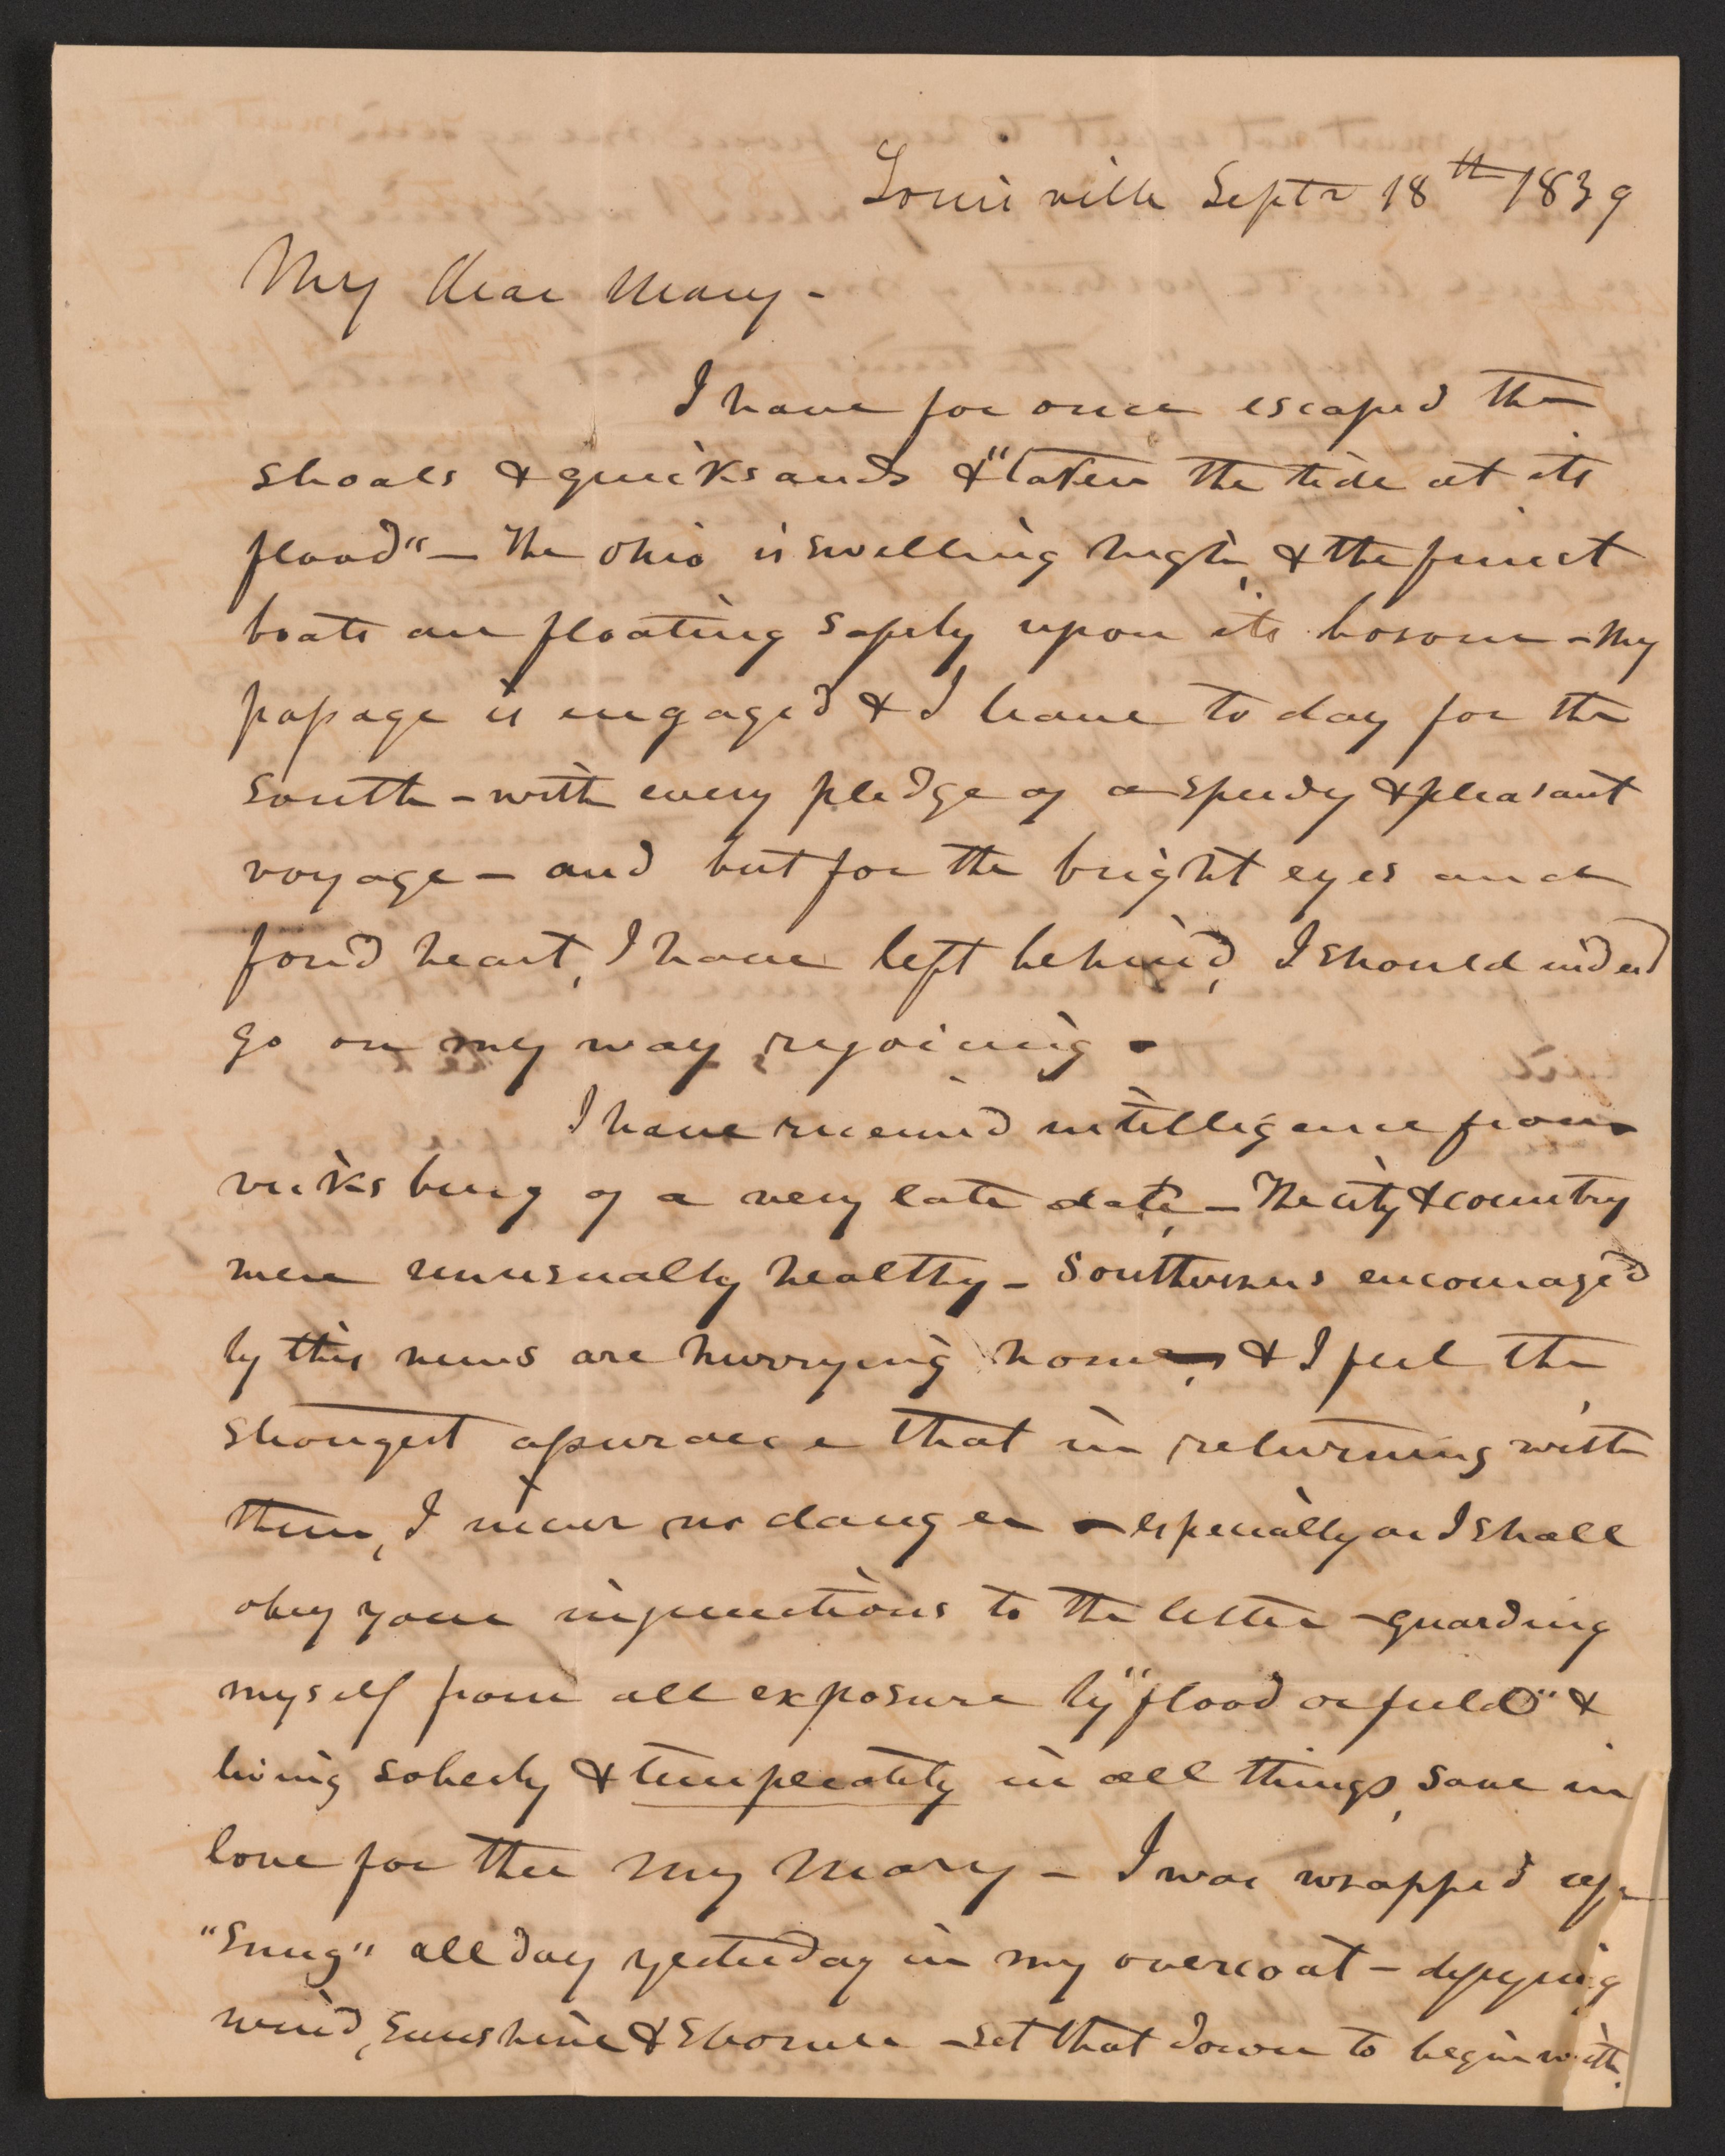 Louisville Septr 18th 1839
My dear Mary -
I have for once escaped the
shoals & quicksands & "taken the tide at its
flood" - The Ohio is swelling high, & the finest
boats are floating safely upon its bosom - My
passage is engaged & I leave to day for the
South - with every pledge of a speedy & pleasant
voyage - and but for the bright eyes and
fond heart, I have left behind, I should indeed
go on my way rejoicing -
I have received intelligence from
Vicksburg of a very late date, - The city & country
were unusually healthy - Southerners encouraged
by this news are hurrying home, & I feel the
strongest assurance that in returning with
them, I incur no danger - especially as I shall
obey your injunctions to the letter - guarding
myself from all exposure by "flood or field" &
living soberly & temperately in all things, save in
love for thee my Mary - I was wrapped up
"snug" all day yesterday in my overcoat - defying
wind, sunshine & storm - set that down to begin with.